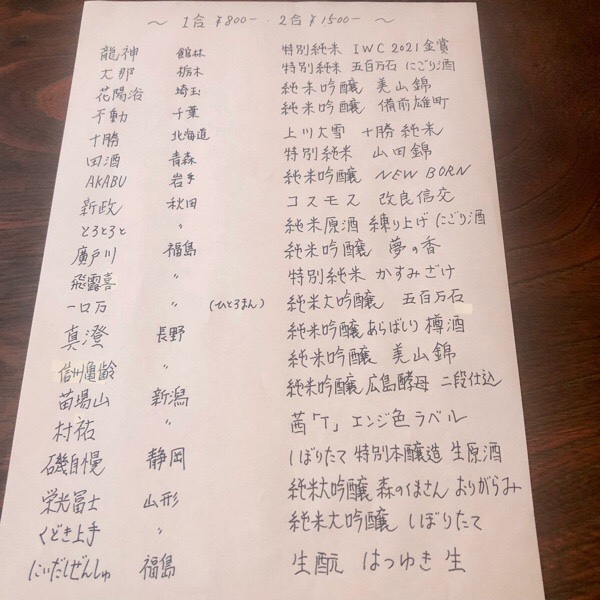 ～ 1合 ¥800- ・ 2合 ¥1500- ～
龍神 館林 特別純米 IWC 2021金賞
大那 栃木 特別純米 五百万石 にごり酒
花陽浴 埼玉 純米吟醸 美山錦
不動 千葉 純米吟醸 備前雄町
十勝 北海道 上川大雪 十勝 純米
田酒 青森 特別純米 山田錦
AKABU 岩手 純米吟醸 NEW BORN
新政 秋田 コスモス 改良信交
とろとろと 〃 純米原酒 練り上げ にごり酒
廣戸川 福島 純米吟醸 夢の香
飛露喜 〃 特別純米 かすみざけ
一口万 〃 (ひとろまん) 純米大吟醸 五百万石
真澄 長野 純米吟醸 あらばしり 樽酒
信州亀齢 〃 純米吟醸 美山錦
苗場山 新潟 純米吟醸 広島酵母 二段仕込
村祐 〃 茜「T」エンジ色 ラベル
磯自慢 静岡 しぼりたて 特別本醸造 生原酒
栄光冨士 山形 純米大吟醸 森のくまさん おりがらみ
くどき上手 〃 純米大吟醸 しぼりたて
にいだしぜんしゅ 福島 生酛 はつゆき 生